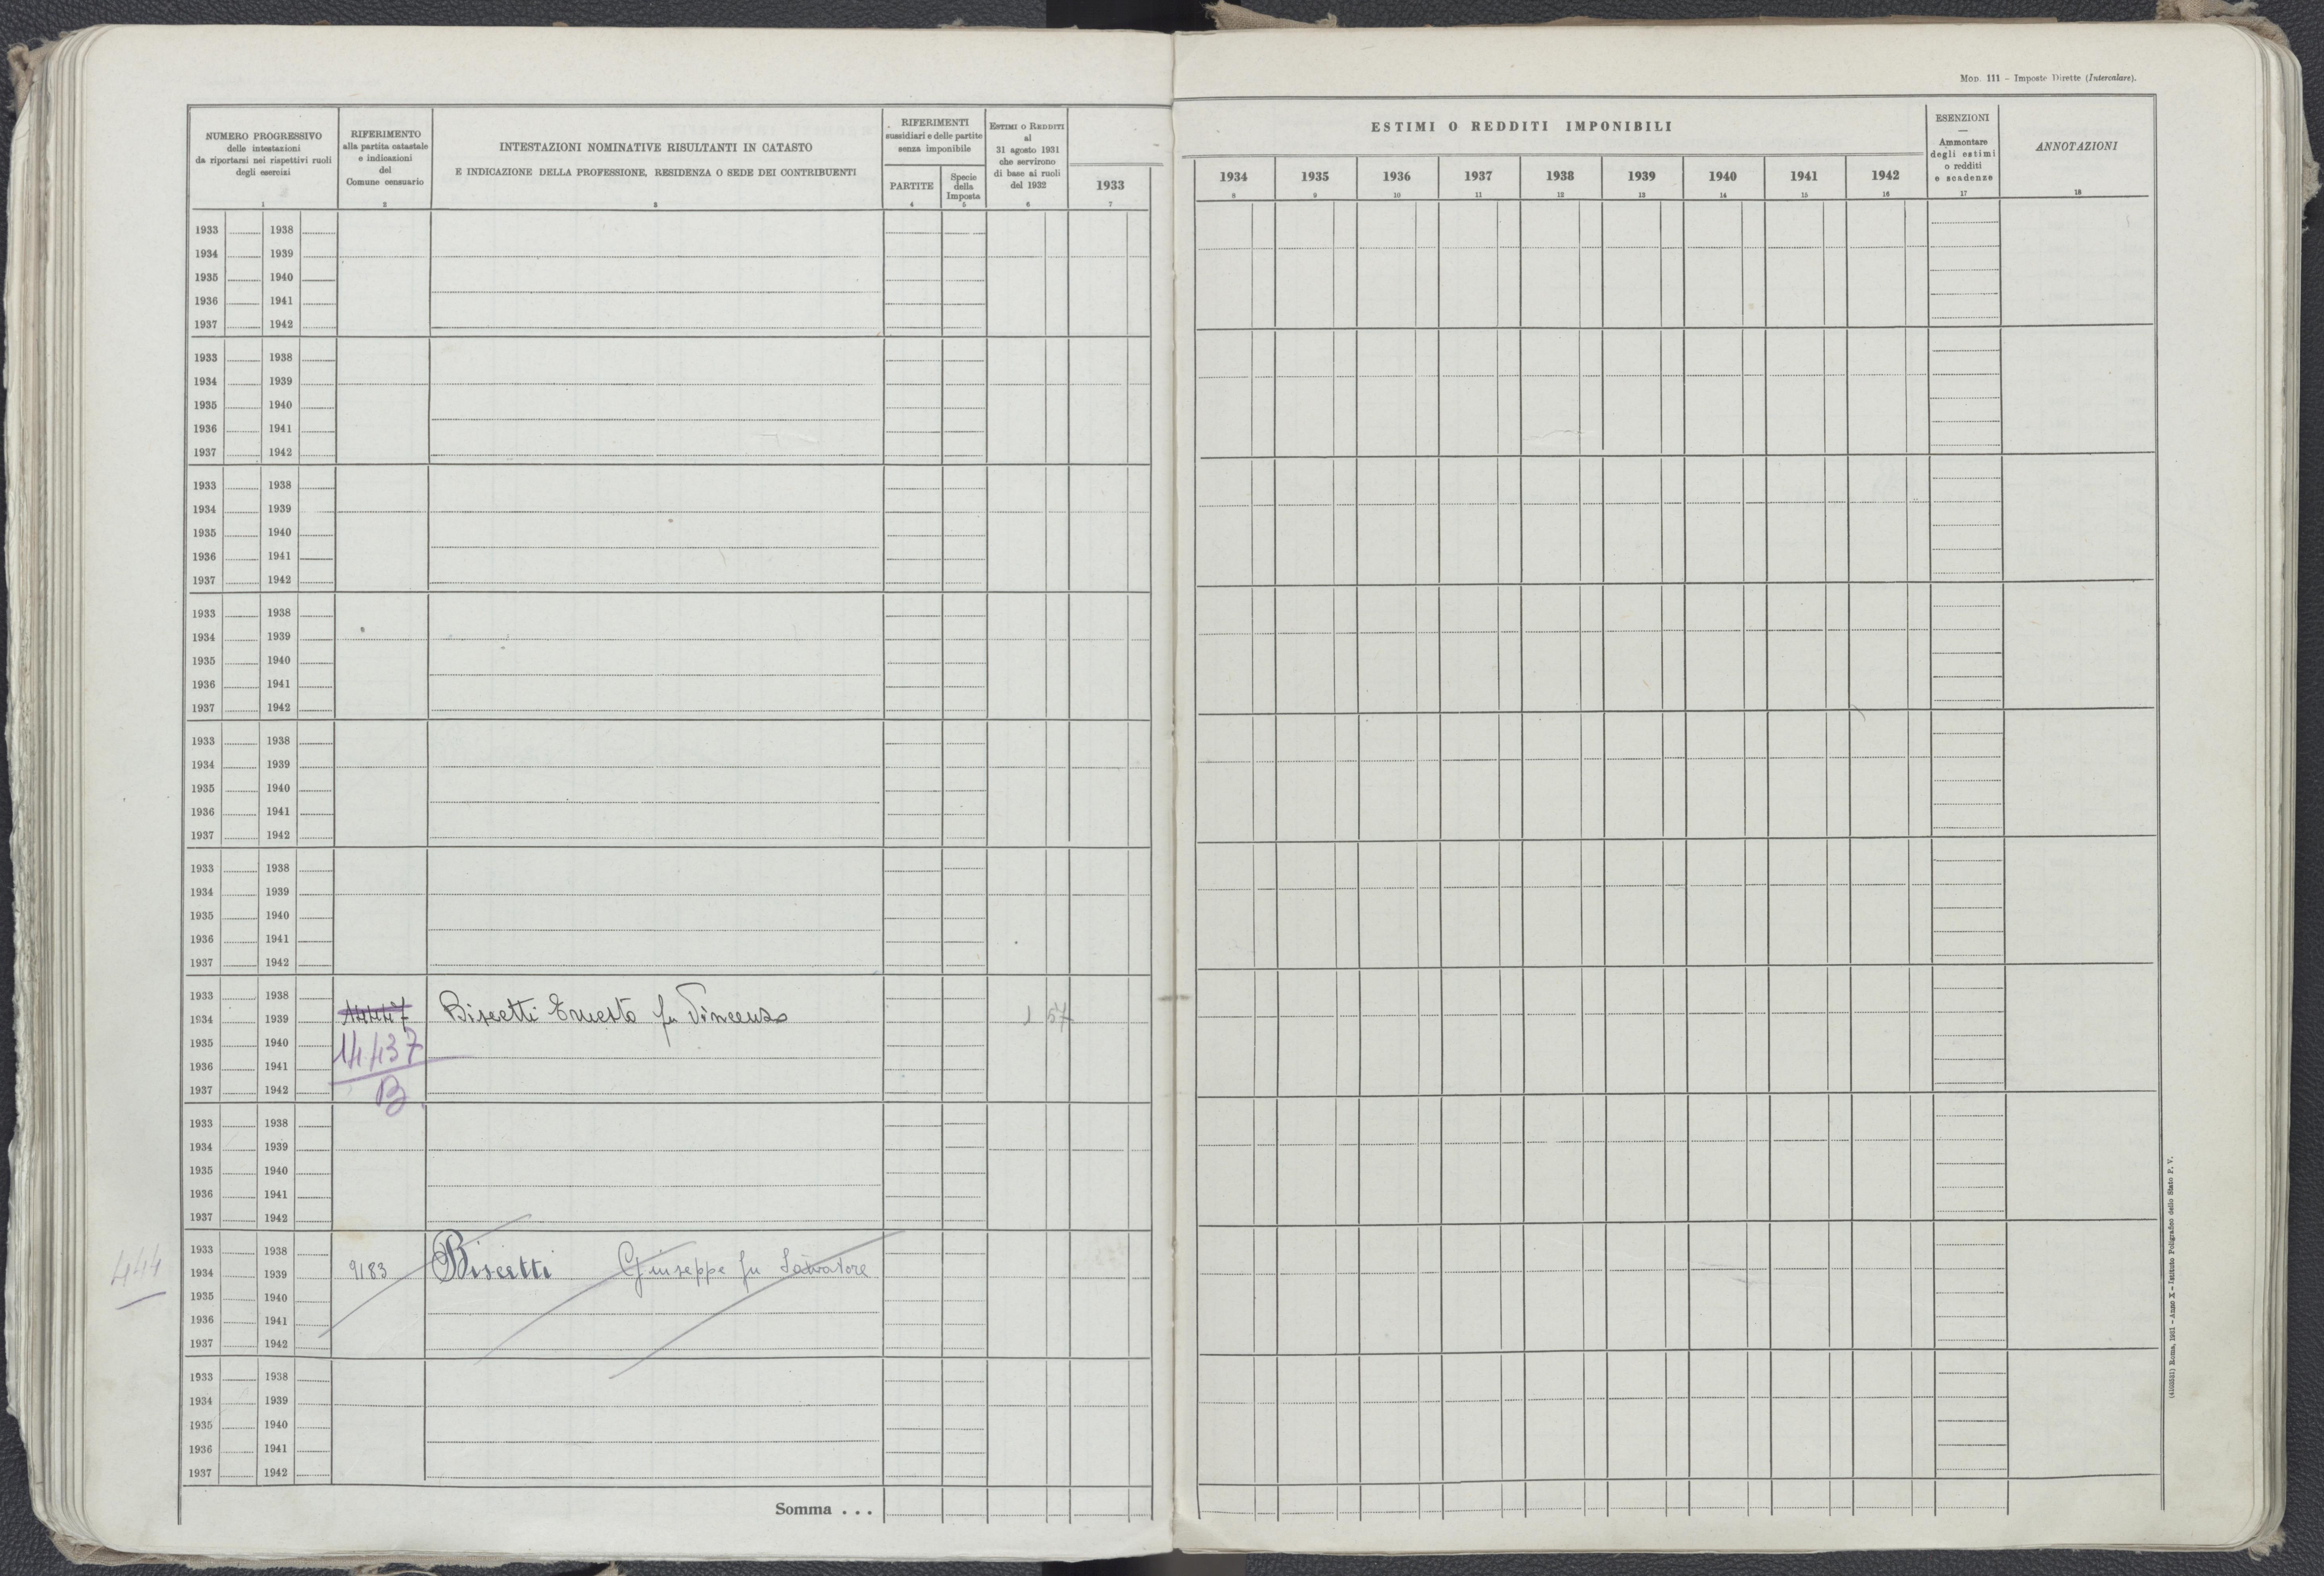 Mod. 111 - Imposte Dirette (Intercalare).
NUMERO PROGRESSIVO
delle intestazioni
da riportarsi nei rispettivi ruoli
degli esercizi
1
RIFERIMENTO
alla partita catastale
e indicazioni
del
Comune censuario
2
INTESTAZIONI NOMINATIVE RISULTANTI IN CATASTO
E INDICAZIONE DELLA PROFESSIONE, RESIDENZA O SEDE DEI CONTRIBUENTI
3
RIFERIMENTI
sussidiari e delle partite
senza imponibile
PARTITE
4
Specie
della
Imposta
5
Estimi o Redditi
al
31 agosto 1931
che servirono
di base ai ruoli
del 1932
6
1933
7
ESTIMI O REDDITI IMPONIBILI
1934 1935 1936 1937 1938 1939 1940 1941 1942
8 9 10 11 12 13 14 15 16
ESENZIONI
—
Ammontare
degli estimi
o redditi
e scadenze
17
ANNOTAZIONI
18
1933 1938
1934 1939
1935 1940
1936 1941
1937 1942
1933 1938
1934 1939
1935 1940
1936 1941
1937 1942
1933 1938
1934 1939
1935 1940
1936 1941
1937 1942
1933 1938
1934 1939
1935 1940
1936 1941
1937 1942
1933 1938
1934 1939
1935 1940
1936 1941
1937 1942
1933 1938
1934 1939
1935 1940
1936 1941
1937 1942
1933 1938
1934 1939 14447 Biscetti Ernesto fu Vincenzo 1 57
1935 1940 14437
1936 1941
1937 1942 B
1933 1938
1934 1939
1935 1940
1936 1941
1937 1942
1933 1938
444 1934 1939 9183 Biscetti Giuseppe fu Salvatore
1935 1940
1936 1941
1937 1942
1933 1938
1934 1939
1935 1940
1936 1941
1937 1942
Somma . . .
(4103531) Roma, 1931 - Anno X - Istituto Poligrafico dello Stato P. V.